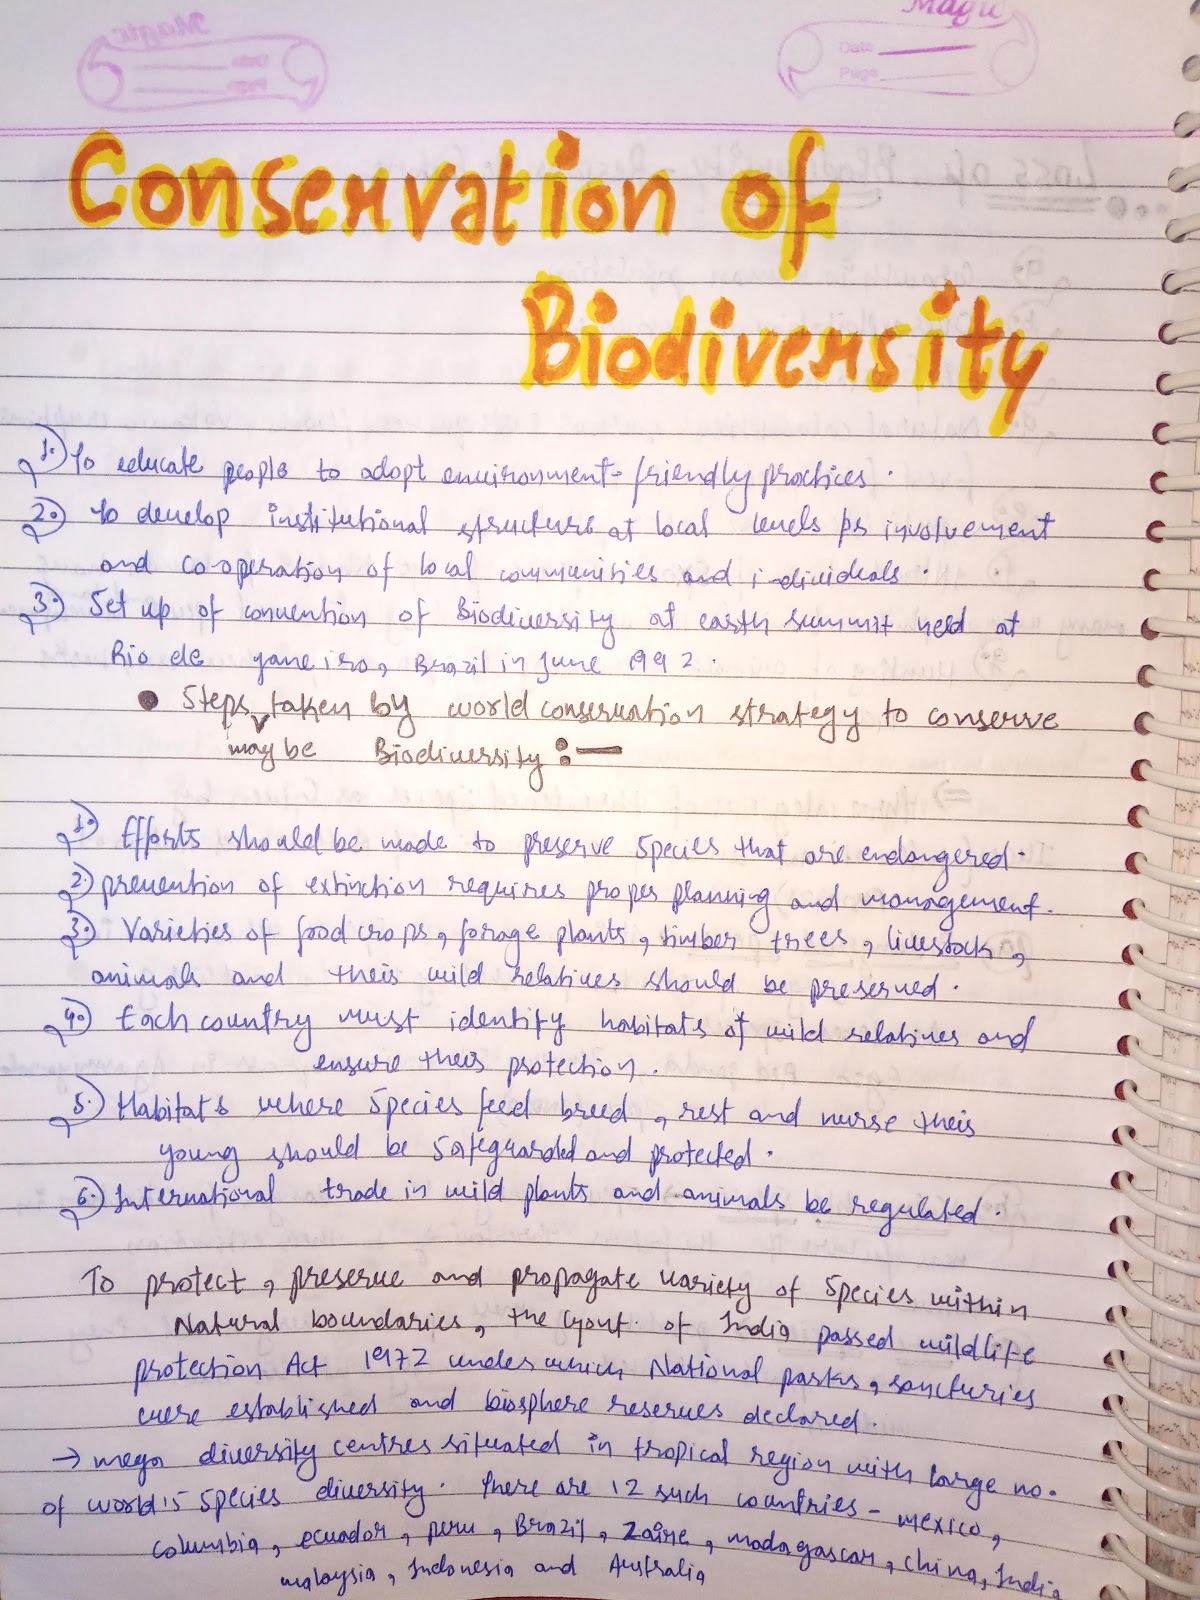 Magic
Magic
Date
Page
Date
Page
Conservation of
Biodiversity
1. To educate people to adopt environment-friendly practices.
2. To develop institutional structure at local levels for involvement
and co-operation of local communities and individeals.
3. Set up of convention of Biodiversity at earth summit held at
Rio de janeiro, Brazil in June 1992.
• Steps taken by world conservation strategy to conserve
may be Biodiversity :—
1. Efforts should be made to preserve species that are endangered.
2. prevention of extinction requires proper planning and management.
3. Varieties of food crops, forage plants, timber trees, livestock,
animals and their wild relatives should be preserved.
4. Each country must identify habitats of wild relatives and
ensure their protection.
5. Habitats where species feed breed, rest and nurse their
young should be safeguarded and protected.
6. International trade in wild plants and animals be regulated.
To protect, preserve and propagate variety of species within
Natural boundaries, the Govt. of India passed wildlife
protection Act 1972 under which National parks, sancturies
were established and biosphere reserves declared.
→ mega diversity centres situated in tropical region with large no.
of world's species diversity. There are 12 such countries - mexico,
columbia, ecuador, peru, Brazil, Zaire, madagascar, china, India
malaysia, Indonesia and Australia